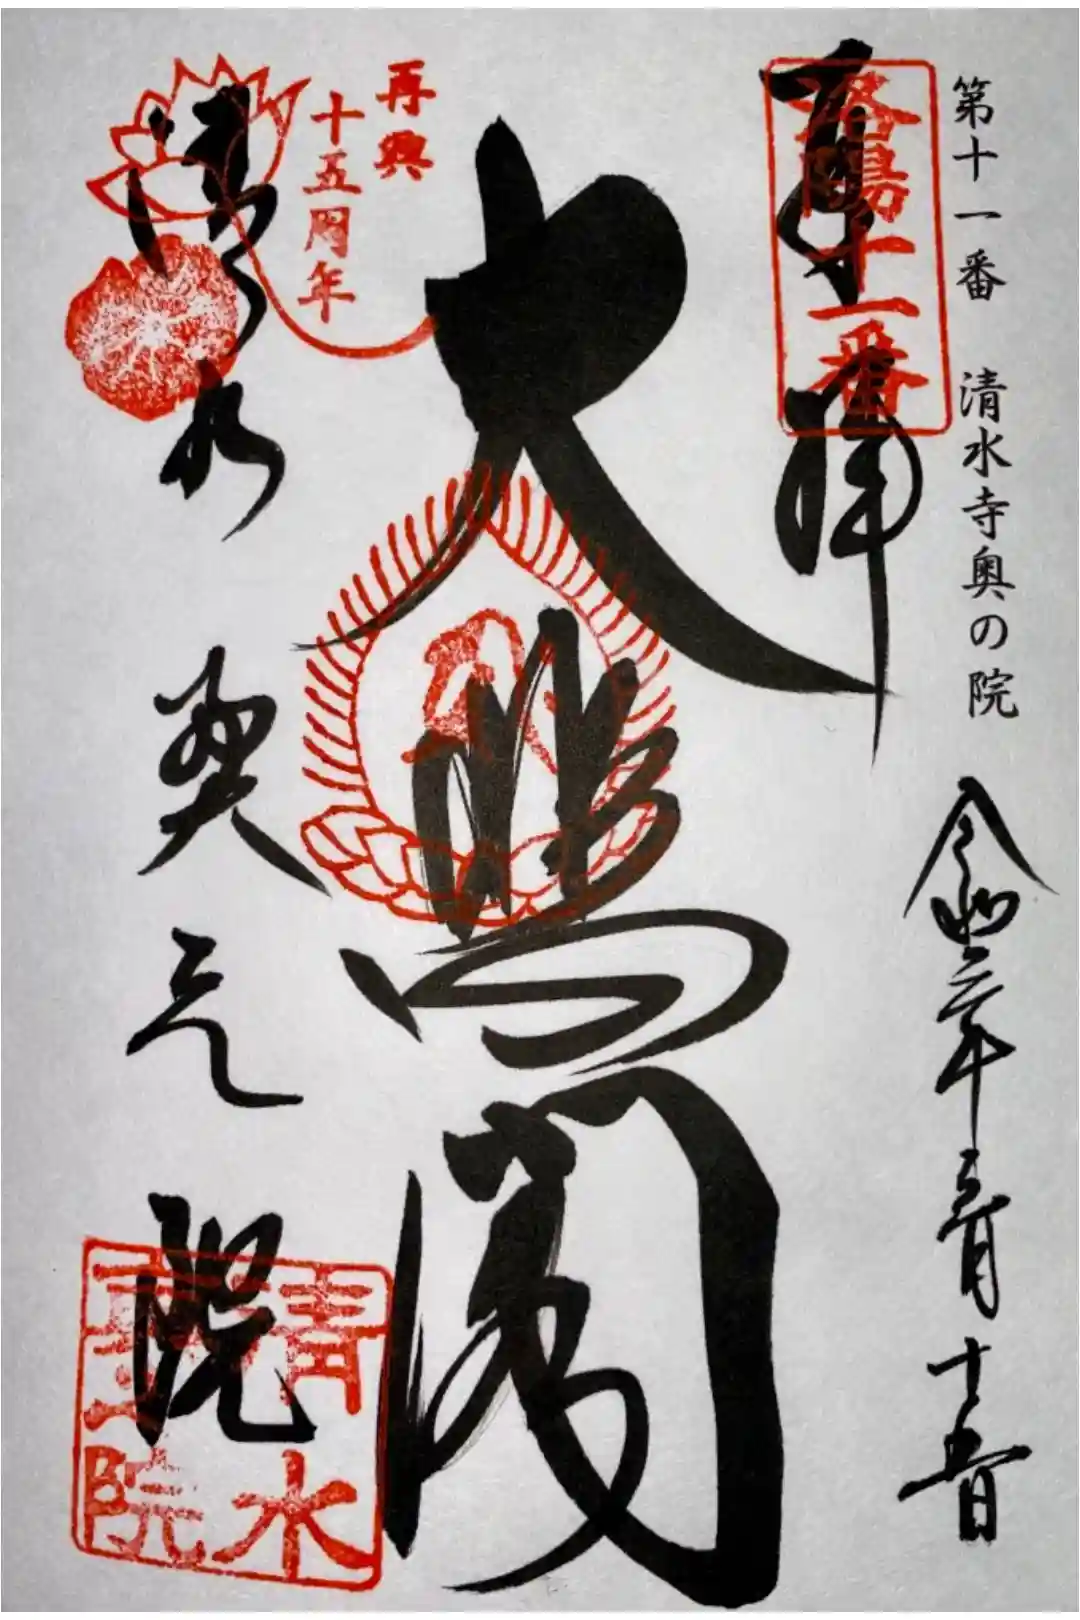 第十一番 清水寺奥の院
令和二年三月十五日
奉拝
洛陽十一番
大悲閣
再興
十五周年
清水奥之院
清水
院